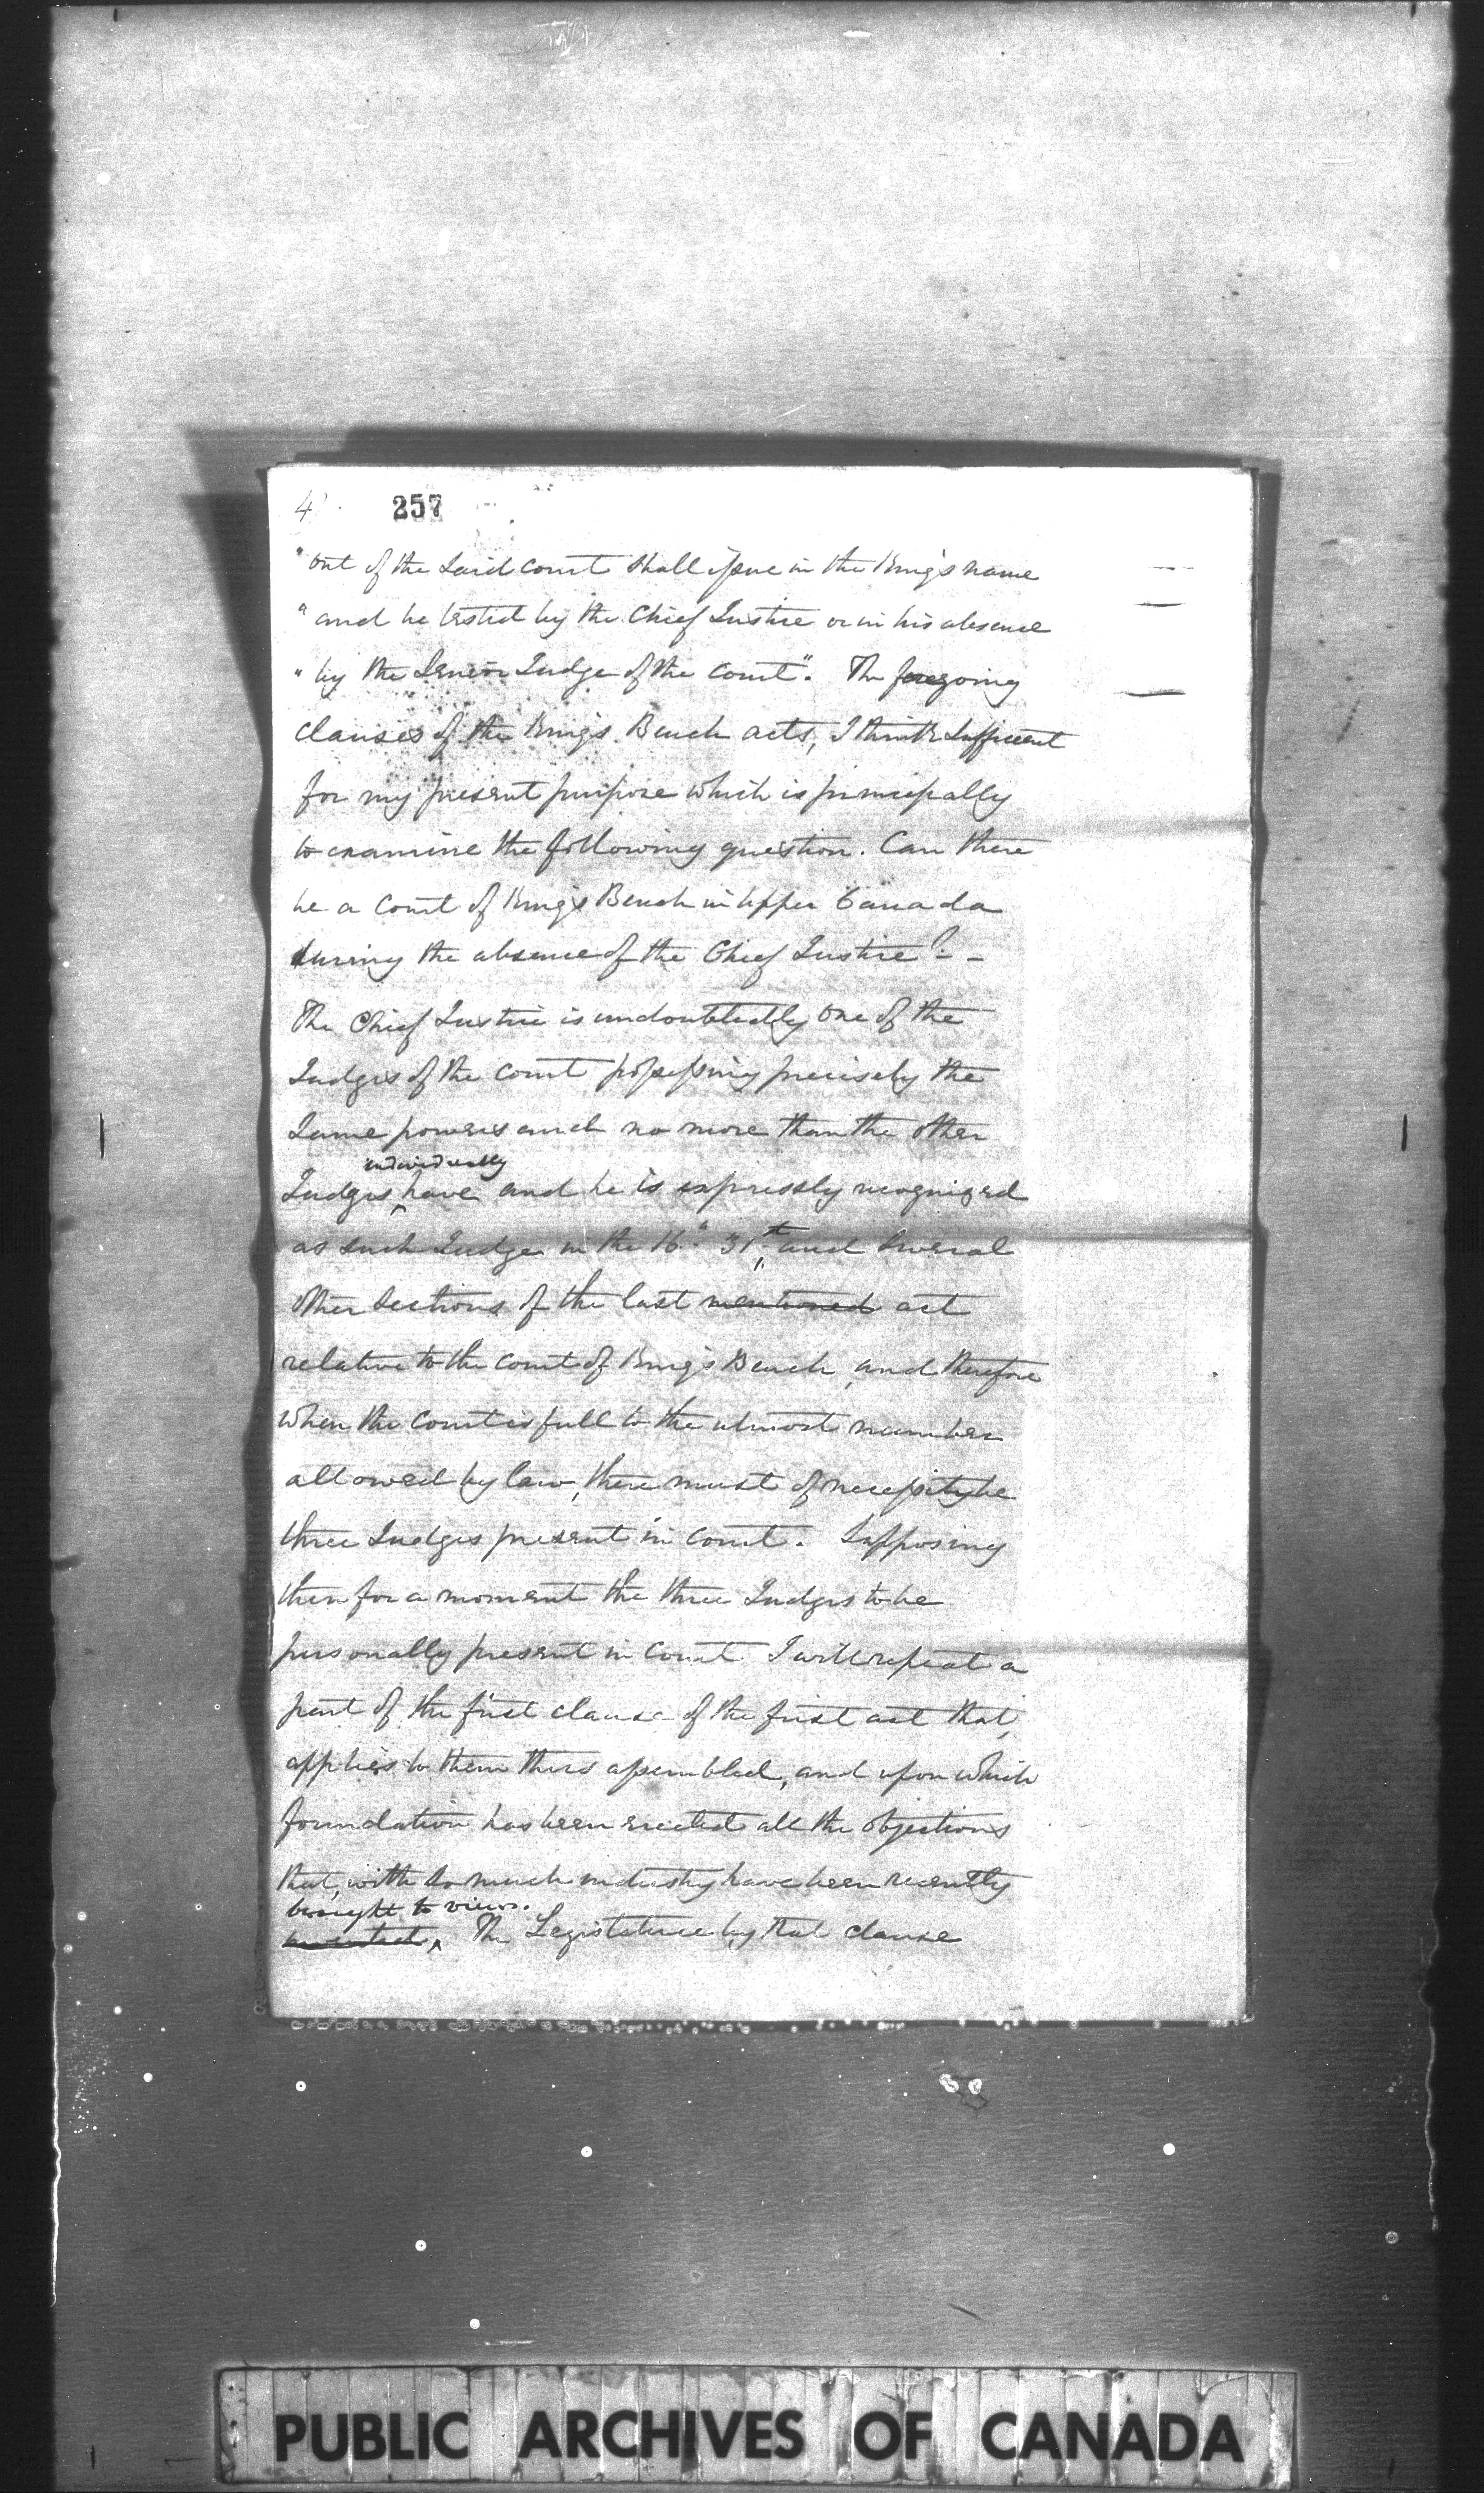 4 257
"out of the said court shall issue in the King's name
"and be tested by the Chief Justice or in his absence
"by the Senior Judge of the court". The foregoing
clauses of the King's Bench acts, I think sufficient
for my present purpose which is principally
to examine the following question. Can there
be a court of King's Bench in Upper Canada
during the absence of the Chief Justice? -
The Chief Justice is undoubtedly one of the
Judges of the court possessing precisely the
same powers and no more than the other
individually
Judges have and he is expressly recognized
as such Judge in the 16th 31st and several
other sections of the last mentioned act
relative to the court of King's Bench, and therefore
when the court is full to the utmost number
allowed by law, there must of necessity be
three Judges present in court. Supposing
then for a moment the three Judges to be
personally present in court I will repeat a
part of the first clause of the first act that,
applies to them thus assembled, and upon which
foundation has been erected all the objections
that, with so much industry have been recently
brought to view.
The Legislature by that clause
PUBLIC ARCHIVES OF CANADA